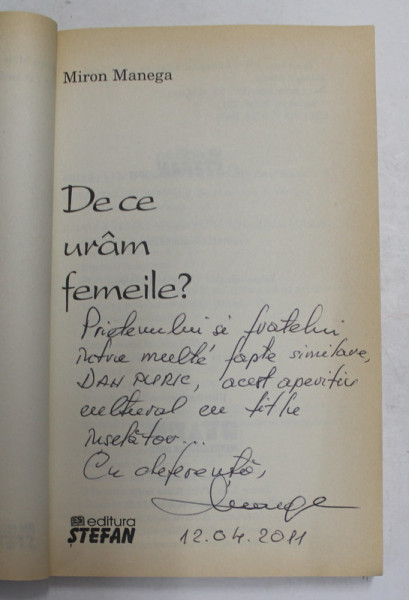 Miron Manega
De ce
urâm
femeile?
Prietenului și fratelui
întru multe fapte similare,
DAN PURIC, acest aperitiv
cultural cu titlu
înșelător...
Cu deferență,
Manega
editura
ȘTEFAN
12.04.2011